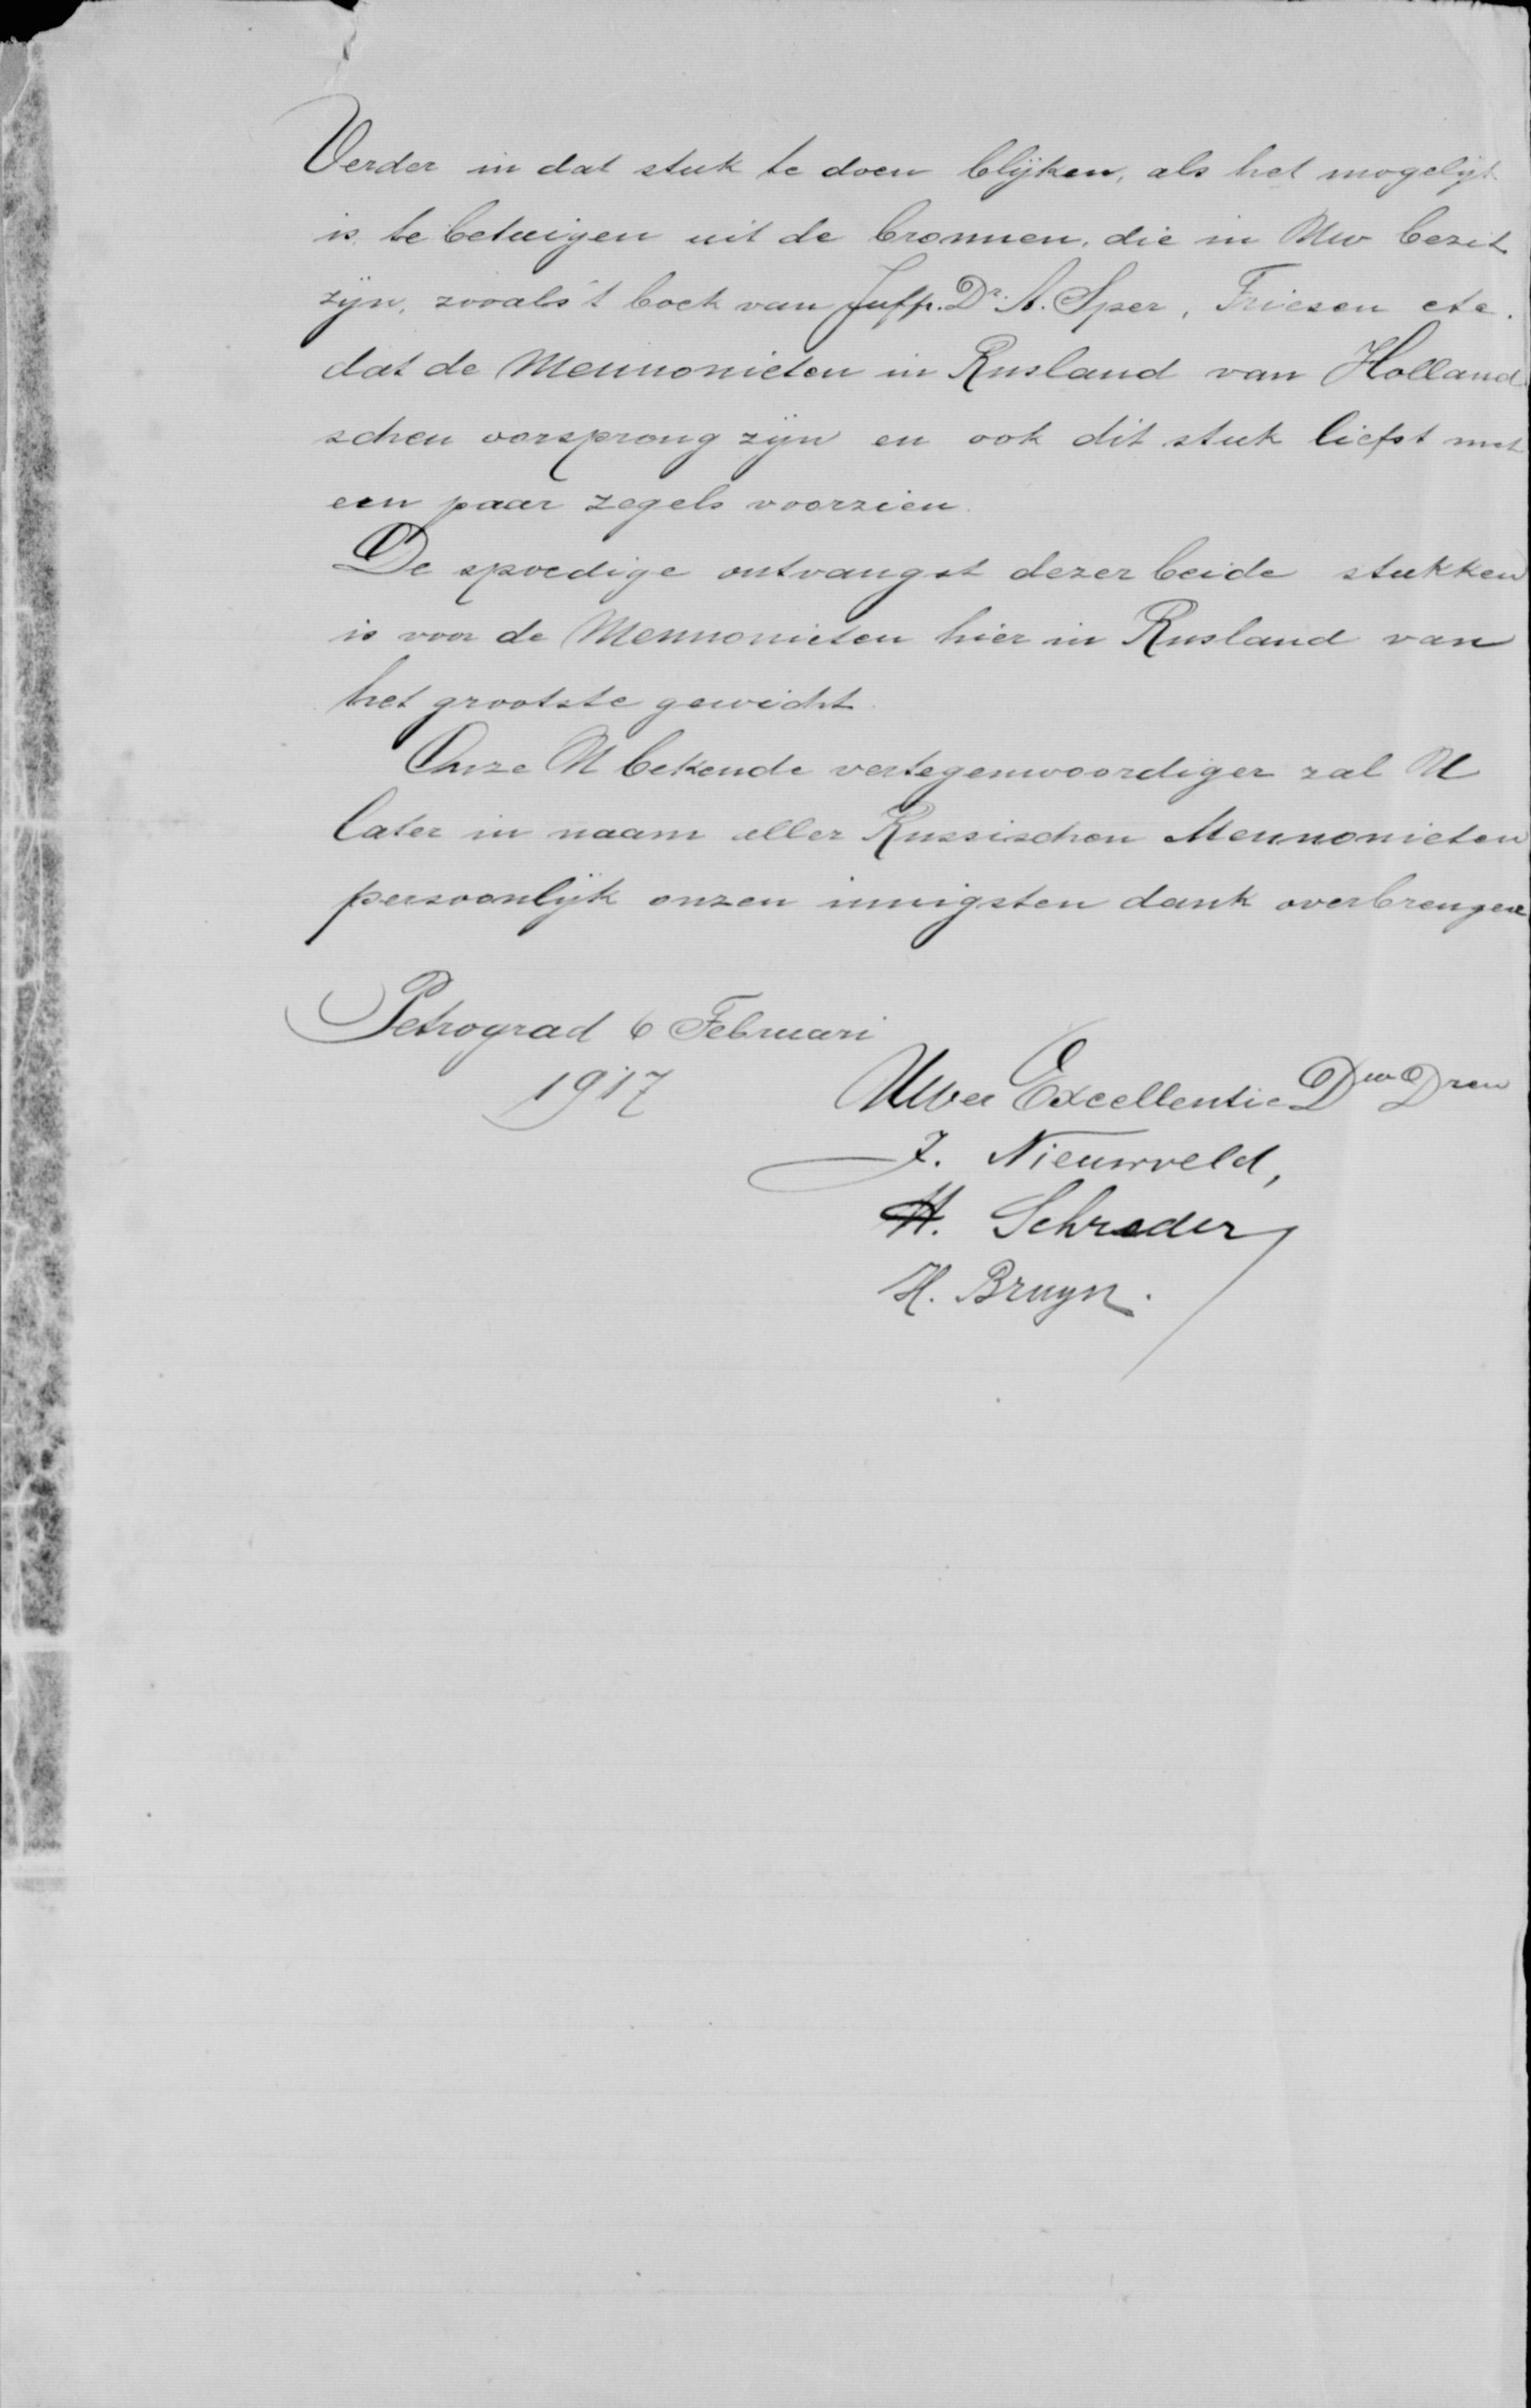 Verder in dat stuk te doen blijken, als het mogelijk
is, te betuigen uit de bronnen, die in Uw bezit
zijn, zooals 't boek van Juffr. Dr. A. Sper, Friesen etc.
dat de Mennonieten in Rusland van Holland
schen oorsprong zijn en ook dit stuk liefst met
een paar zegels voorzien.
De spoedige ontvangst dezer beide stukken
is voor de Mennonieten hier in Rusland van
het grootste gewicht.
Onze U bekende vertegenwoordiger zal U
later in naam aller Russischen Mennonieten
persoonlijk onzen innigsten dank overbrengen
Petrograd 6 Februari
1917
Uwer Excellentie Dw Dren
J. Nieuwveld,
H. Schrader
H. Bruyn.